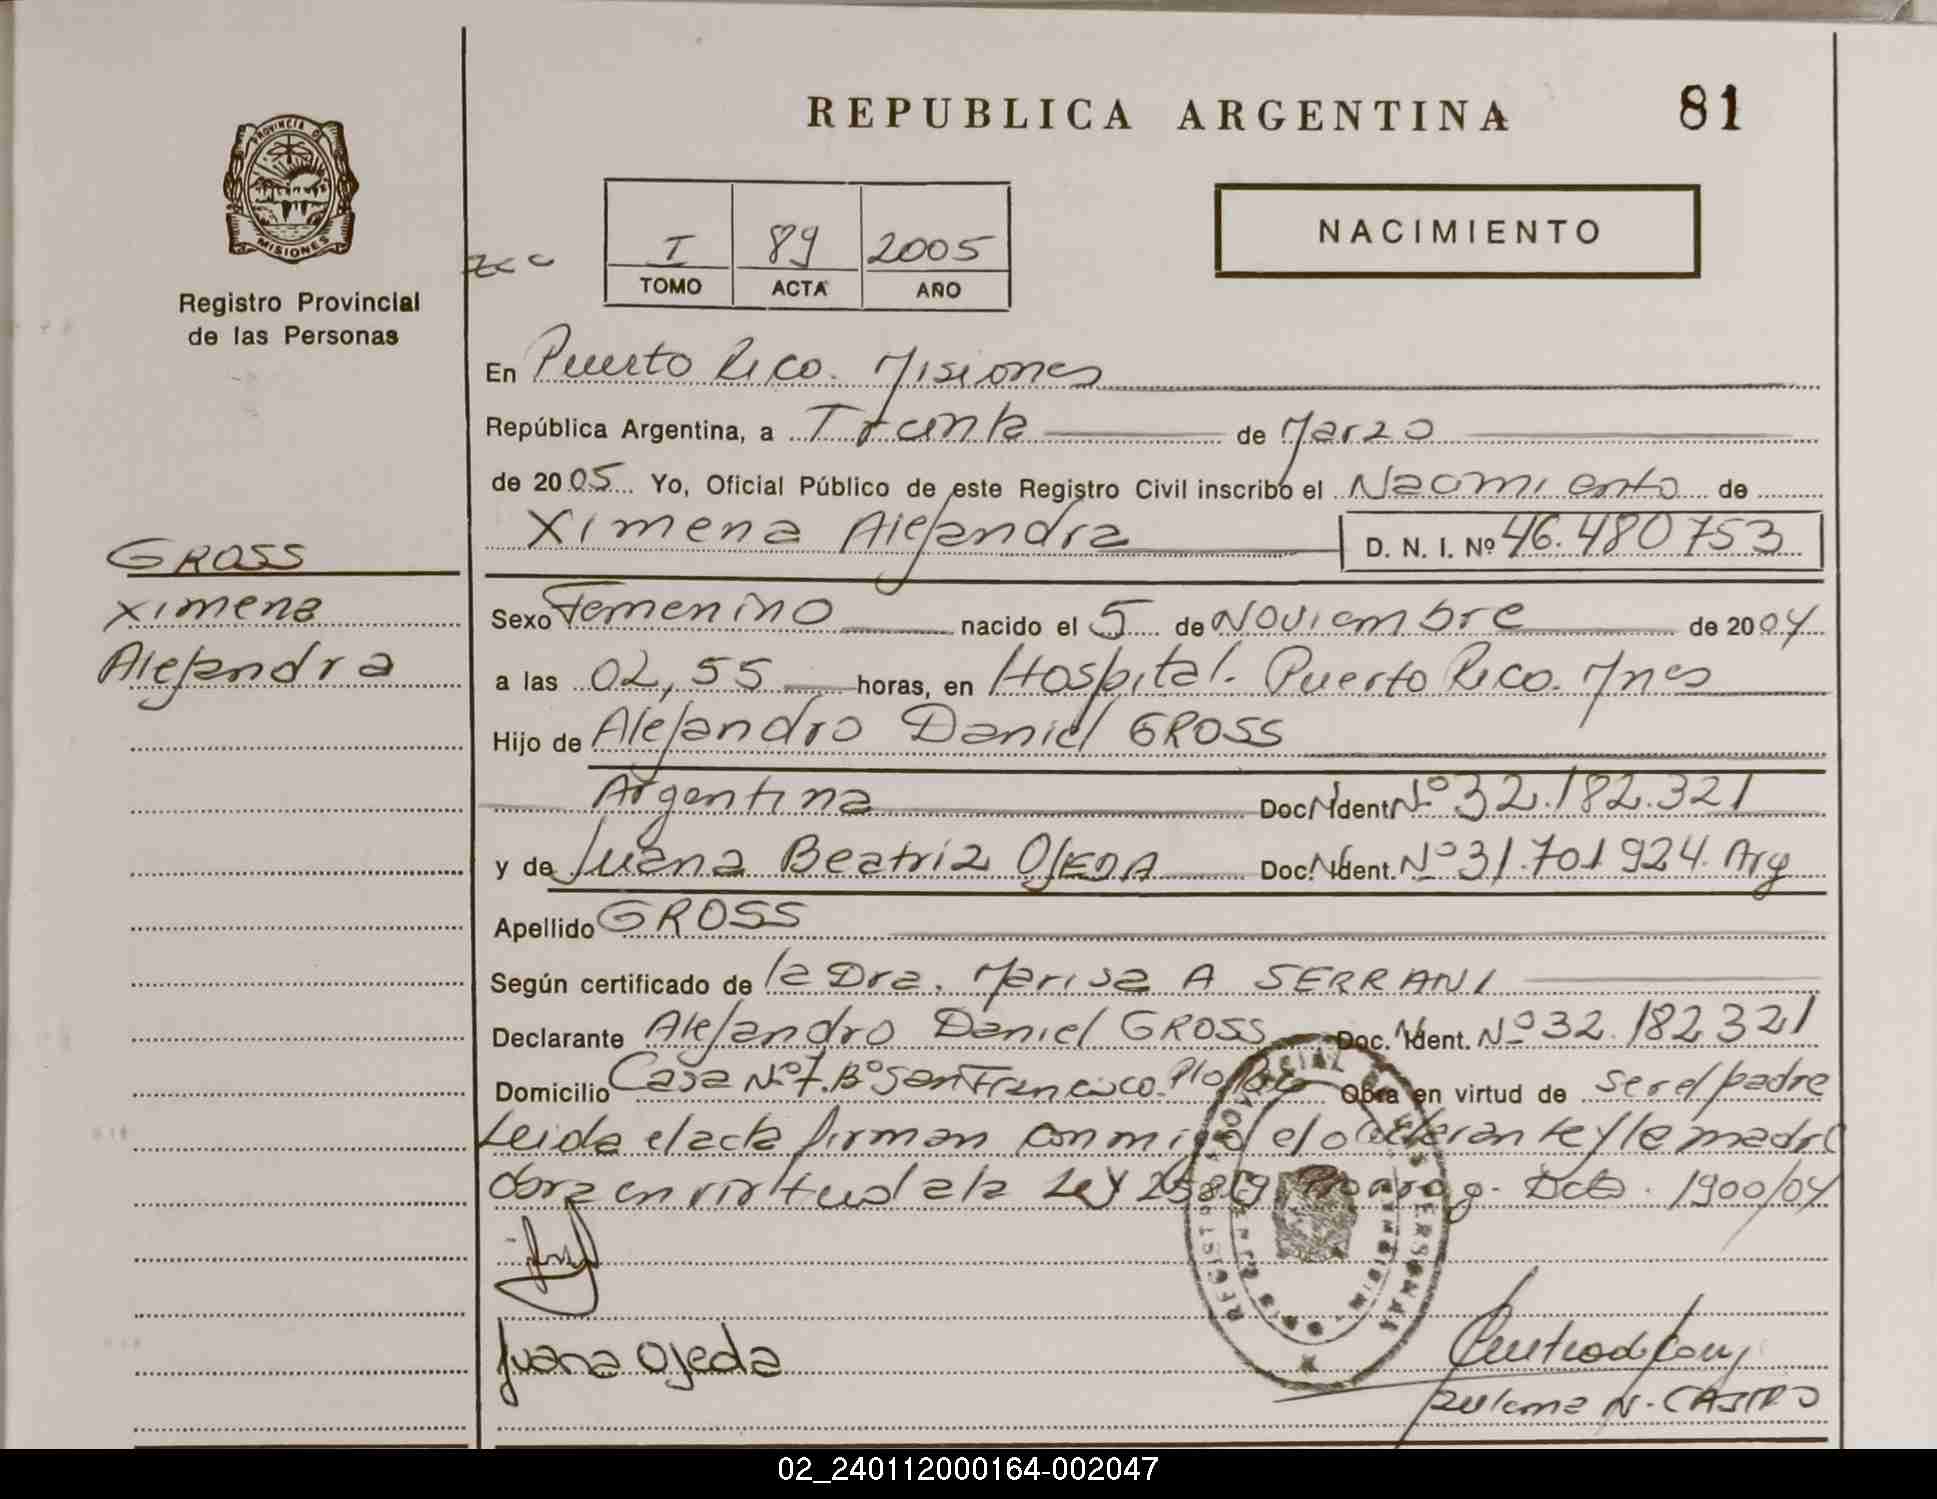 REPUBLICA ARGENTINA 81
PROVINCIA DE
MISIONES
Registro Provincial
de las Personas
NACIMIENTO
I 89 2005
TOMO ACTA AÑO
En Puerto Rico. Misiones
República Argentina, a Treinta de Marzo
de 2005 Yo, Oficial Público de este Registro Civil inscribo el Nacimiento de
Ximena Alejandra D. N. I. Nº 46.480753
GROSS
Ximena
Alejandra
Sexo Femenino nacido el 5 de Noviembre de 2004
a las 02,55 horas, en Hospital. Puerto Rico. Mnes
Hijo de Alejandro Daniel GROSS
Argentina Doc. Ident Nº 32.182.321
y de Juana Beatriz OJEDA Doc. Ident. Nº 31.701924. Arg
Apellido GROSS
Según certificado de la Dra. Marisa A SERRANI
Declarante Alejandro Daniel GROSS Doc. Ident. Nº 32.182321
Domicilio Casa Nº 7. Bº San Francisco. Pto Rico Obra en virtud de ser el padre
Leida el acta firman conmigo el declarante y la madre
obra en virtud a la Ley 25819 Dcto. 1900/04
Juana Ojeda
Zulema N. CASTRO
02_240112000164-002047